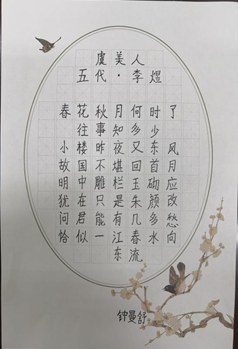 虞美人
五代·李煜
春花秋月何时了
往事知多少
小楼昨夜又东风
故国不堪回首月
明中雕栏玉砌应
犹在只是朱颜改
问君能有几多愁
恰似一江春水向
东流
钟曼舒